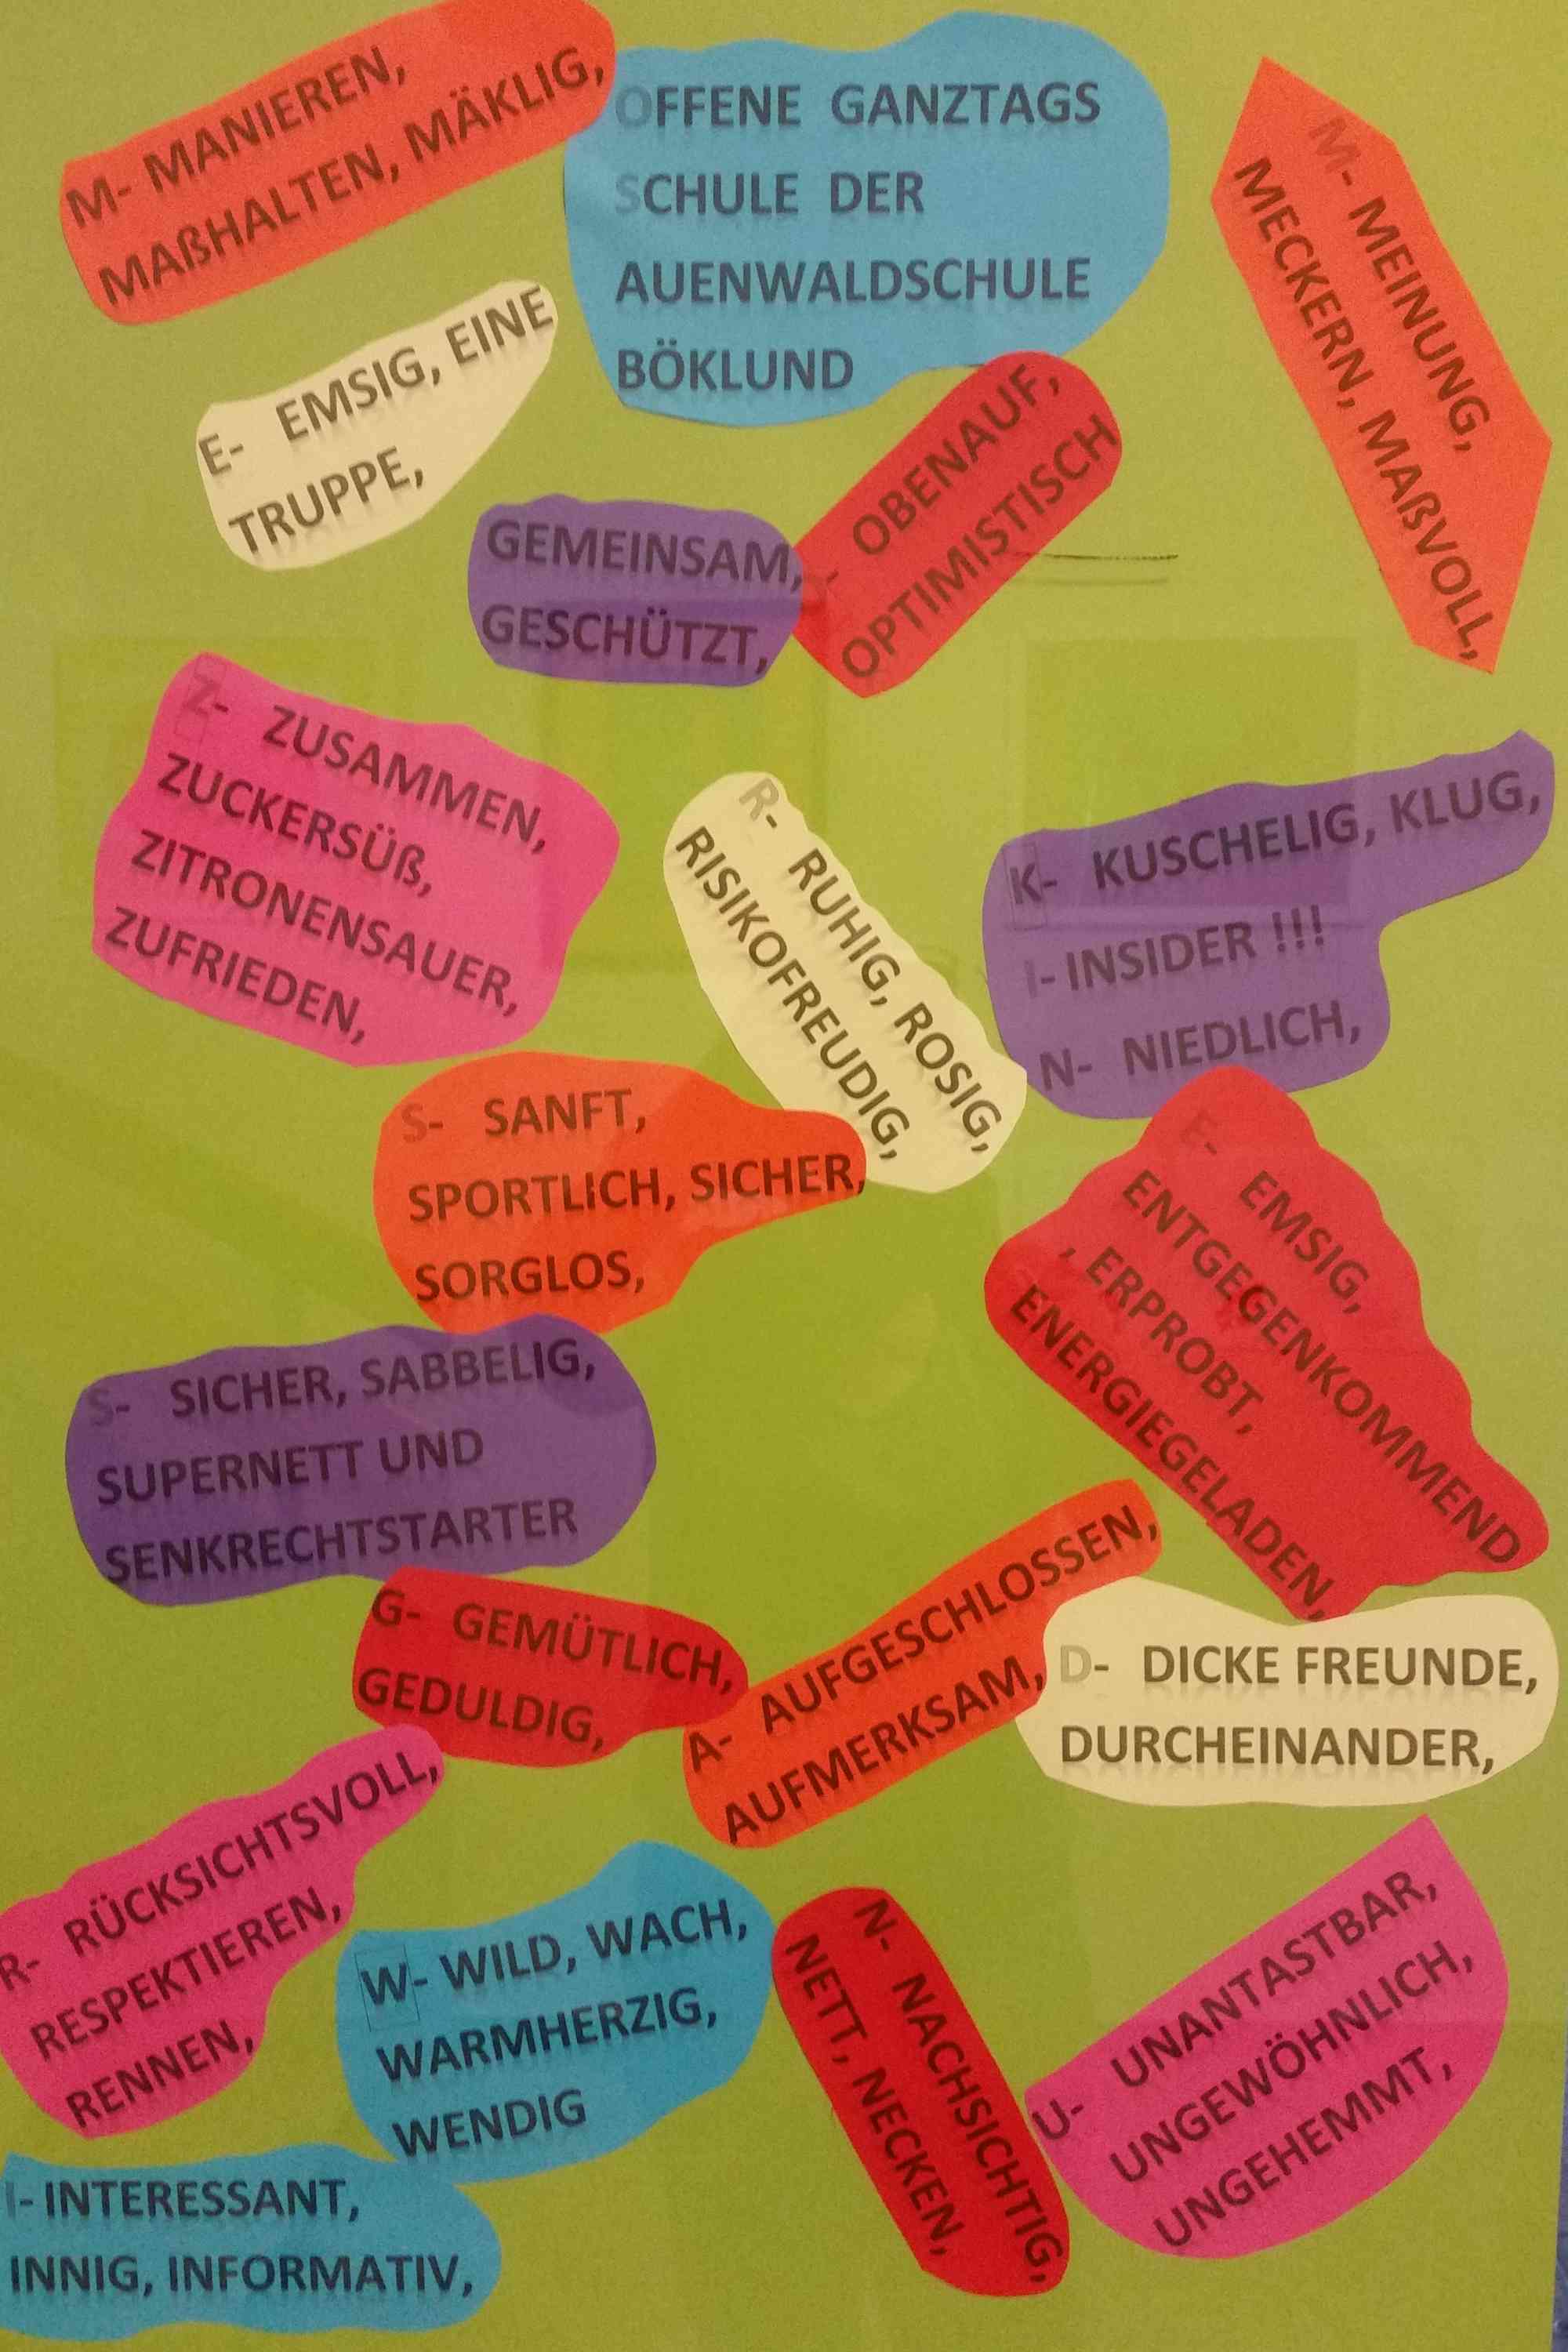 M- MANIEREN,
MAßHALTEN, MÄKLIG,
OFFENE GANZTAGS
SCHULE DER
AUENWALDSCHULE
BÖKLUND
M- MEINUNG,
MECKERN, MAßVOLL,
E- EMSIG, EINE
TRUPPE,
GEMEINSAM,
GESCHÜTZT,
- OBENAUF,
OPTIMISTISCH
Z- ZUSAMMEN,
ZUCKERSÜß,
ZITRONENSAUER,
ZUFRIEDEN,
R- RUHIG, ROSIG,
RISIKOFREUDIG,
K- KUSCHELIG, KLUG,
I- INSIDER !!!
N- NIEDLICH,
S- SANFT,
SPORTLICH, SICHER,
SORGLOS,
E- EMSIG,
ENTGEGENKOMMEND
, ERPROBT,
ENERGIEGELADEN,
S- SICHER, SABBELIG,
SUPERNETT UND
SENKRECHTSTARTER
G- GEMÜTLICH,
GEDULDIG,
A- AUFGESCHLOSSEN,
AUFMERKSAM,
D- DICKE FREUNDE,
DURCHEINANDER,
R- RÜCKSICHTSVOLL,
RESPEKTIEREN,
RENNEN,
W- WILD, WACH,
WARMHERZIG,
WENDIG
N- NACHSICHTIG,
NETT, NECKEN,
U- UNANTASTBAR,
UNGEWÖHNLICH,
UNGEHEMMT,
I- INTERESSANT,
INNIG, INFORMATIV,